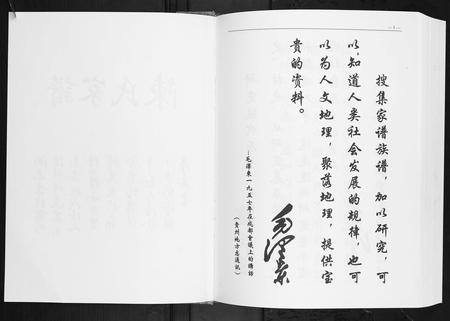 — 1 —
搜集家谱族谱，加以研究，可
以知道人类社会发展的规律，也可
以为人文地理，聚落地理，提供宝
贵的资料。
毛泽东
--毛澤東一九五七年在成都會議上的講話
(貴州地方志通訊)
陳氏家譜